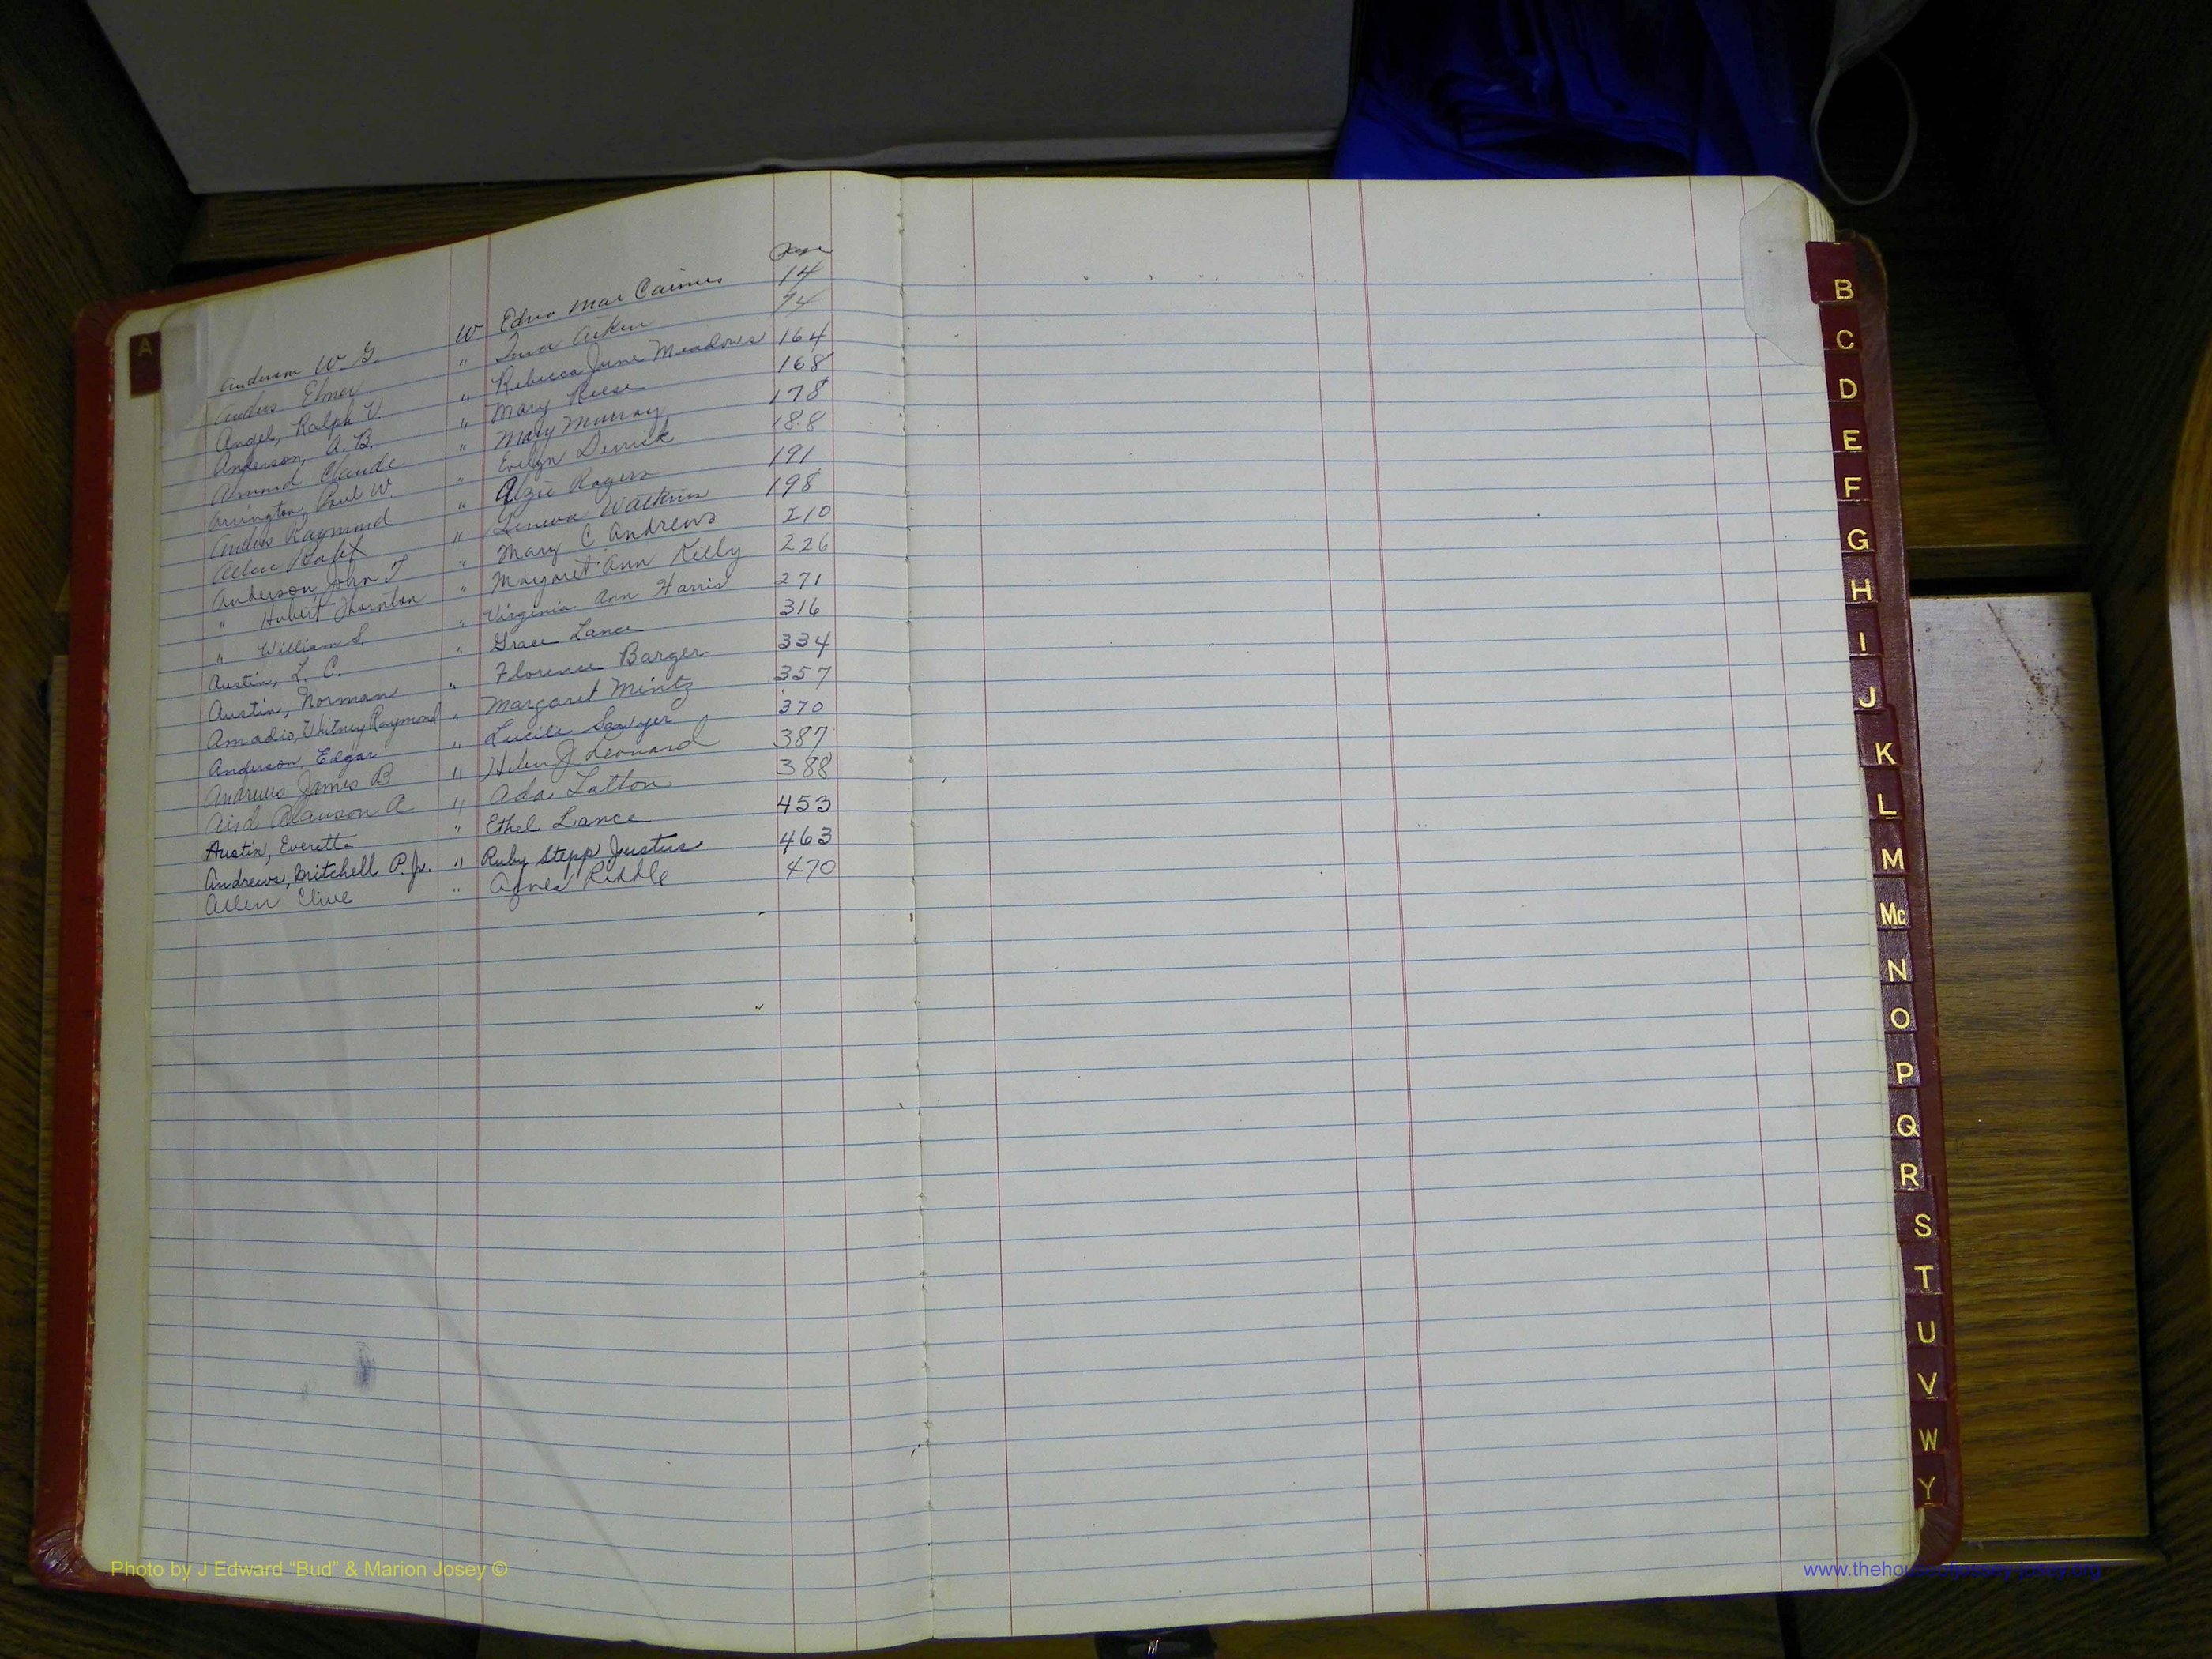 Page
Anderson W. G. W Edna Mae Cairnes 14
Anders Elmer " Aiken 74
Angel, Ralph V. " Rebecca June Meadows 164
Anderson, A. B. " Mary Reese 168
Almond Claude " Mary Murray 178
Arrington, Paul W. " Evelyn Derrick 188
Anders Raymond " Alzie Rogers 191
Allen Robt " Geneva Watkins 198
Anderson, John T " Mary C Andrews 210
" Hubert Thornton " Margaret Ann Kelly 226
" William S. " Virginia Ann Harris 271
Austin, L. C. " Grace Lance 316
Austin, Norman " Florence Barger 334
Amadio, Whitney Raymond " Margaret Mintz 357
Anderson, Edgar " Lucile Sawyer 370
Andrews James B " Helen J Leonard 387
Aird Alauson A " Ada Latton 388
Austin, Everette " Ethel Lance 453
Andrews, Mitchell P. Jr. " Ruby Stepp Justus 463
Allen Clive " Agnes Riddle 470
A
B
C
D
E
F
G
H
I
J
K
L
M
Mc
N
O
P
Q
R
S
T
U
V
W
Y
Photo by J Edward “Bud” & Marion Josey ©